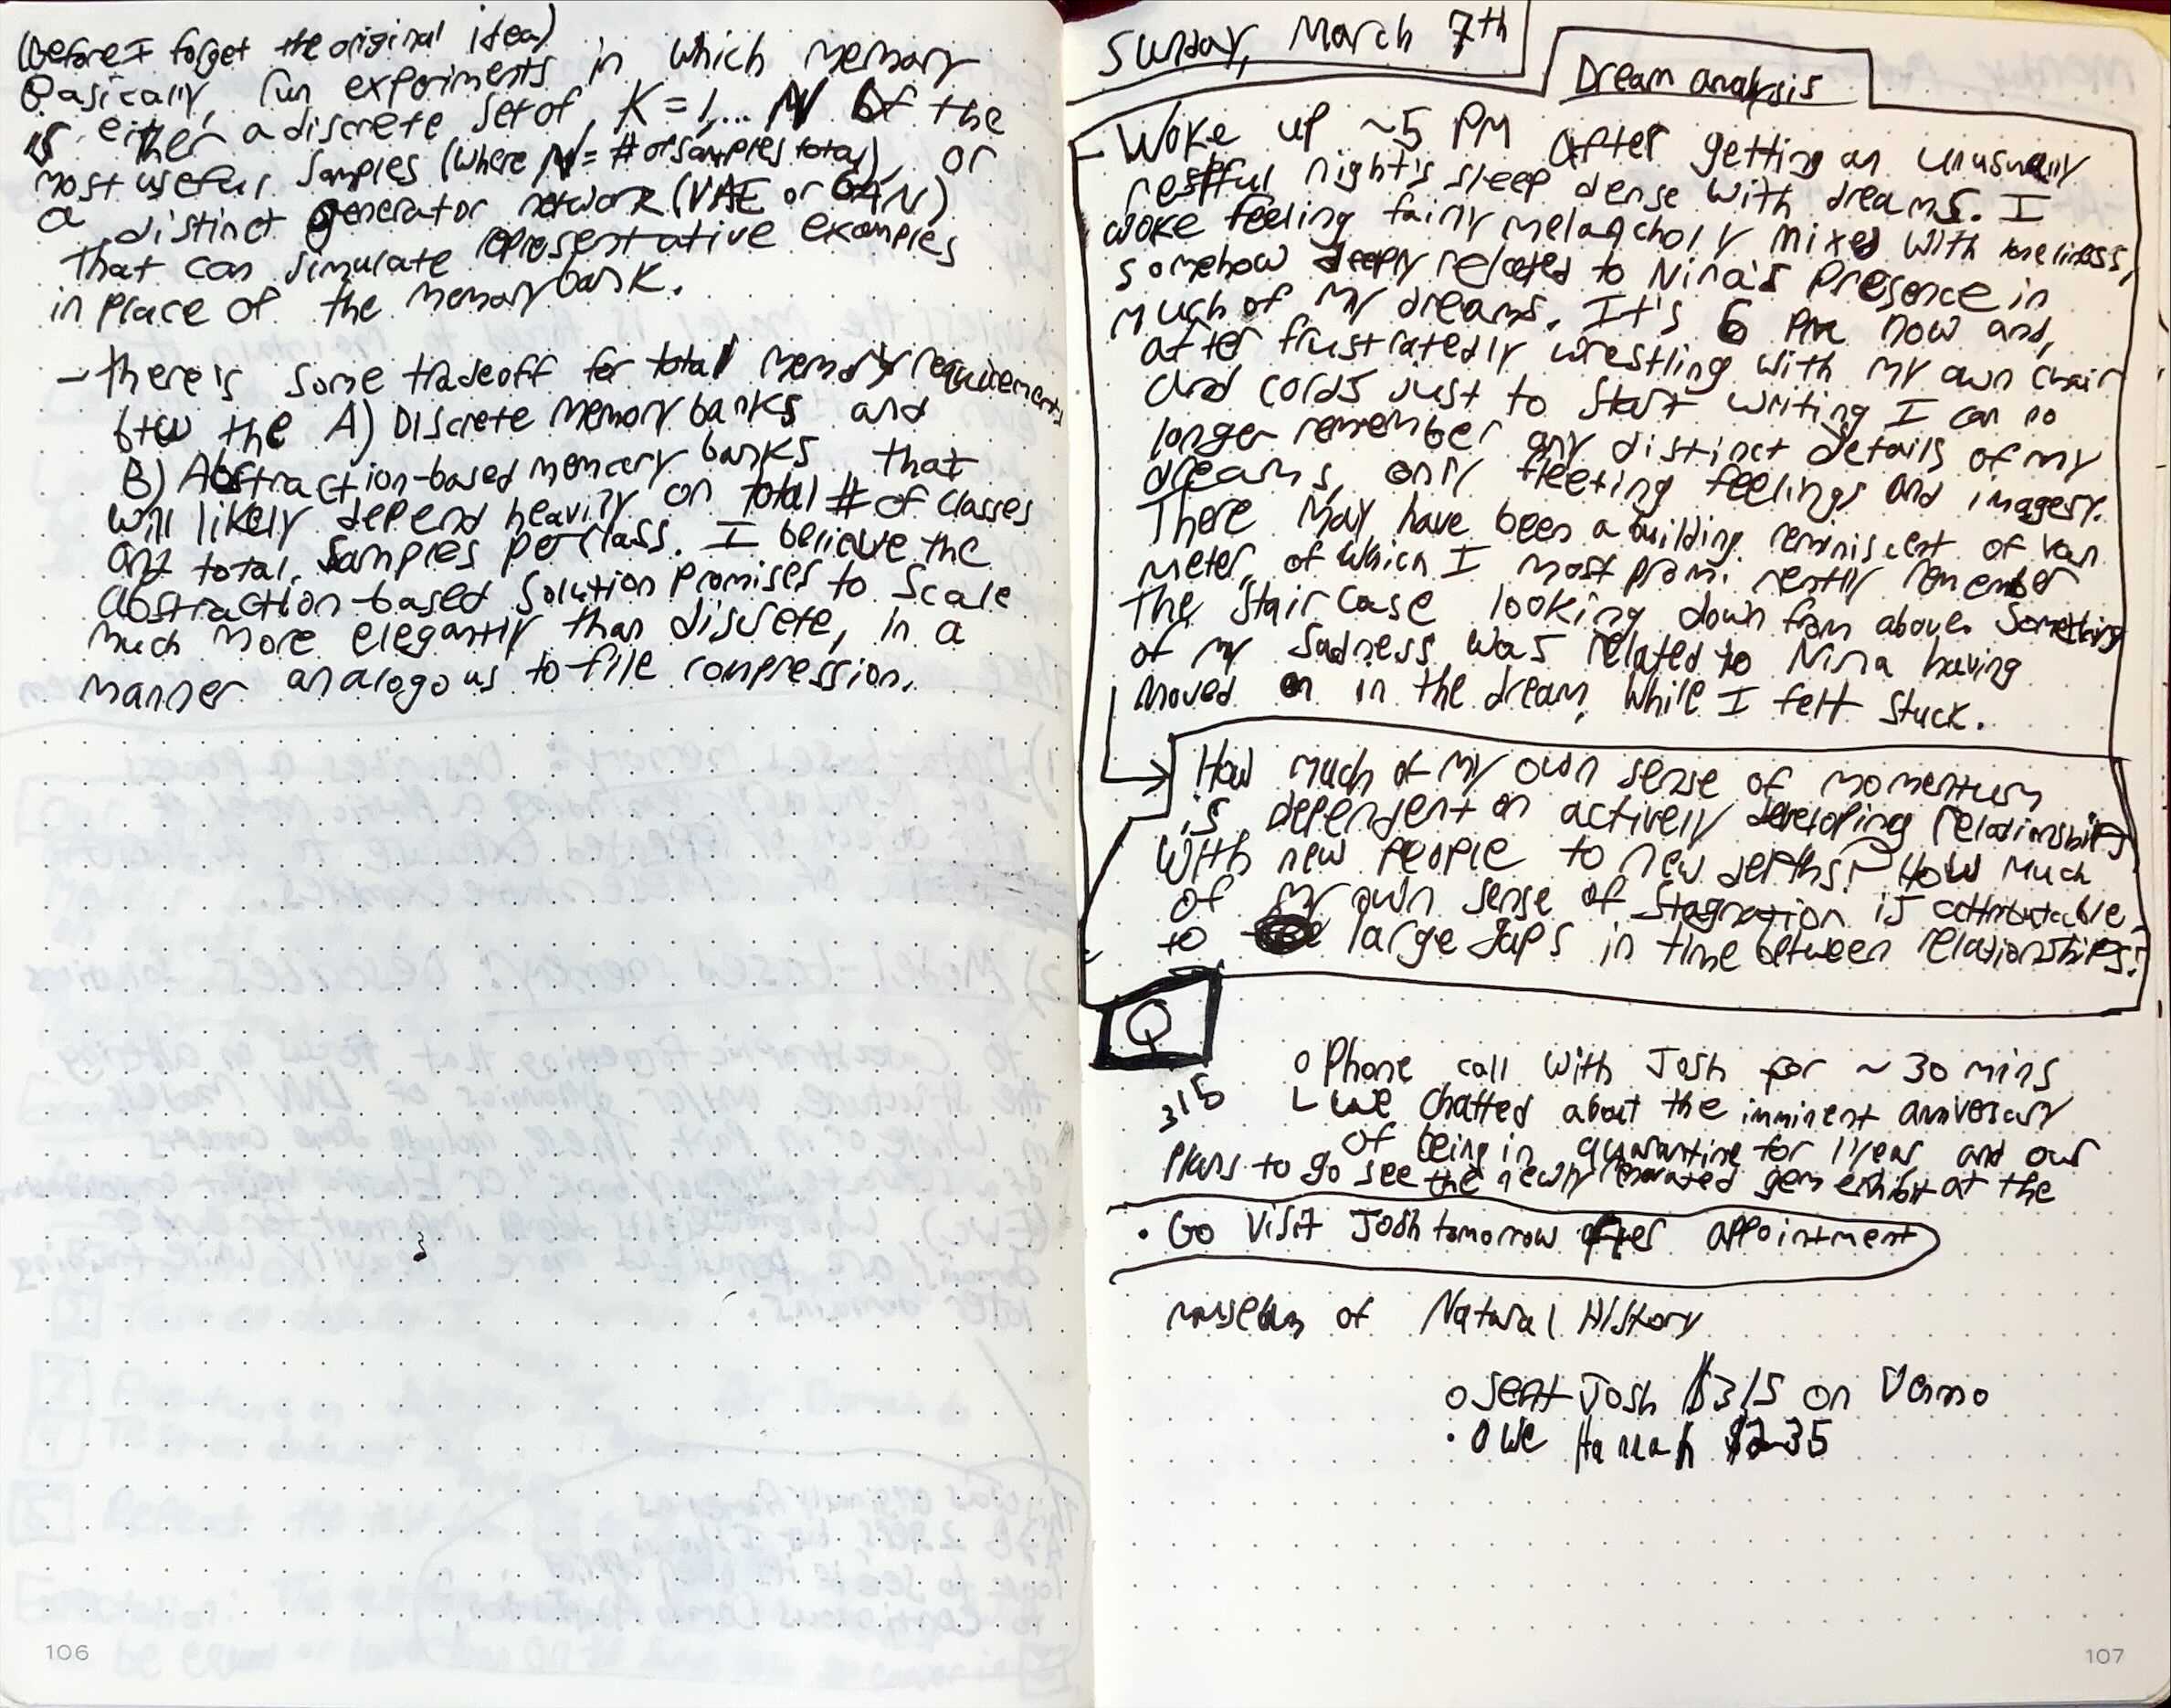 (Before I forget the original idea)
Basically, run experiments in which memory
is either a discrete set of K = 1,... N of the
most useful samples (where N = # of samples total), or
a distinct generator network (VAE or GAN)
that can simulate representative examples
in place of the memory bank.
- There's some tradeoff for total memory requirements
btw the A) Discrete memory banks and
B) Abstraction-based memory banks that
will likely depend heavily on total # of classes
and total samples per class. I believe the
abstraction-based solution promises to scale
much more elegantly than discrete, in a
manner analogous to file compression.
106
Sunday, March 7th
Dream analysis
- Woke up ~5 PM after getting an unusually
restful night's sleep dense with dreams. I
woke feeling fairly melancholy mixed with loneliness,
somehow deeply related to Nina's presence in
much of my dreams. It's 6 PM now and,
after frustratedly wrestling with my own chair
and cords just to start writing I can no
longer remember any distinct details of my
dreams, only fleeting feelings and imagery.
There may have been a building reminiscent of Van
Meter, of which I most prominently remember
the staircase looking down from above. Something
of my sadness was related to Nina having
moved on in the dream, while I felt stuck.
How much of my own sense of momentum
is dependent on actively developing relationships
with new people to new depths? How much
of my own sense of stagnation is attributable
to large gaps in time between relationships?
Q
315
o Phone call with Josh for ~ 30 mins
L we chatted about the imminent anniversary
of being in quarantine for 1 year and our
plans to go see the newly renovated gem exhibit at the
• Go visit Josh tomorrow after appointment
museum of Natural History
o sent Josh $315 on Venmo
• owe Hannah $235
107